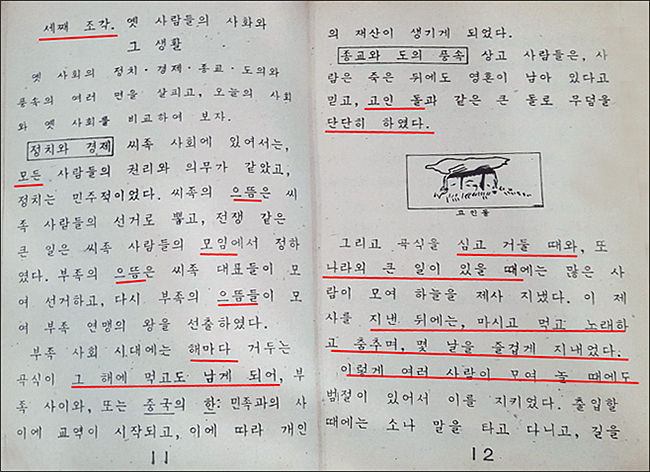 세째 조각. 옛 사람들의 사회와
그 생활
옛 사회의 정치·경제·종교·도의와
풍속의 여러 면을 살피고, 오늘의 사회
와 옛 사회를 비교하여 보자.
정치와 경제 씨족 사회에 있어서는,
모든 사람들의 권리와 의무가 같았고,
정치는 민주적이었다. 씨족의 으뜸은 씨
족 사람들의 선거로 뽑고, 전쟁 같은
큰 일은 씨족 사람들의 모임에서 정하
였다. 부족의 으뜸은 씨족 대표들이 모
여 선거하고, 다시 부족의 으뜸들이 모
여 부족 연맹의 왕을 선출하였다.
부족 사회 시대에는 해마다 거두는
곡식이 그 해에 먹고도 남게 되어, 부
족 사이와, 또는 중국의 한: 민족과의 사
이에 교역이 시작되고, 이에 따라 개인
11
의 재산이 생기게 되었다.
종교와 도의 풍속 상고 사람들은, 사
람은 죽은 뒤에도 영혼이 남아 있다고
믿고, 고인 돌과 같은 큰 돌로 무덤을
단단히 하였다.
고인돌
그리고 곡식을 심고 거둘 때와, 또
나라의 큰 일이 있을 때에는 많은 사
람이 모여 하늘을 제사 지냈다. 이 제
사를 지낸 뒤에는, 마시고 먹고 노래하
고 춤추며, 몇 날을 즐겁게 지내었다.
이렇게 여러 사람이 모여 놀 때에도
범절이 있어서 이를 지키었다. 출입할
때에는 소나 말을 타고 다니고, 길을
12